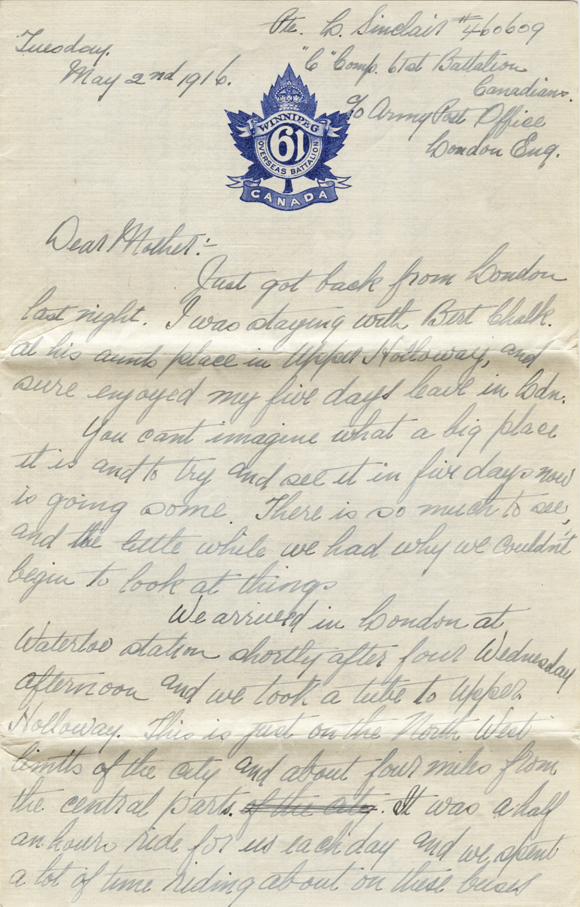 Pte. L. Sinclair #460609
Tuesday.
May 2nd 1916.
"C" Comp. 61st Battalion
Canadians.
c/o Army Post Office
London Eng.
WINNIPEG
61
OVERSEAS BATTALION
CANADA
Dear Mother:-
Just got back from London
last night. I was staying with Bert Chalk.
at his aunts place in Upper Holloway, and
sure enjoyed my five days leave in Ldn.
You cant imagine what a big place
it is and to try and see it in five days now
is going some. There is so much to see,
and the little while we had why we couldn't
begin to look at things
We arrived in London at
Waterloo station shortly after four Wednesday
afternoon and we took a tube to Upper
Holloway. This is just on the North West
limits of the city and about four miles from
the central parts. of the city. It was a half
an hours ride for us each day and we spent
a lot of time riding about on these buses